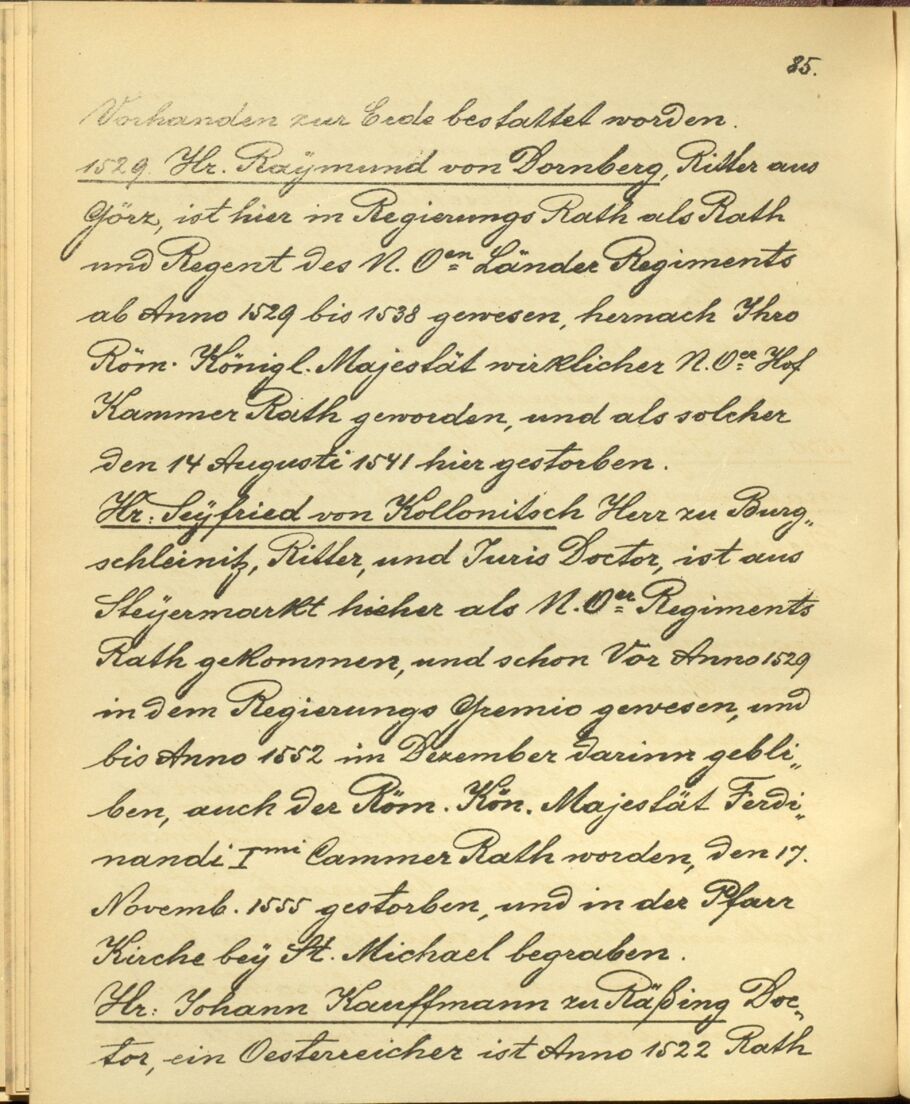 85.
Vorhanden zur Erde bestattet worden.
1529. Hr. Raÿmund von Dornberg, Ritter aus
Görz, ist hier in Regierungs Rath als Rath
und Regent des N. Oen= Länder Regiments
ab Anno 1529 bis 1538 gewesen, hernach Ihro
Röm. Königl. Majestät wirklicher N. Oer= Hof
Kammer Rath geworden, und als solcher
den 14 Augusti 1541 hier gestorben.
Hr: Seÿfried von Kollonitsch Herr zu Burg„
schleinitz, Ritter, und Juris Doctor, ist aus
Steÿermarkt hieher als N. Oer= Regiments
Rath gekommen, und schon Vor Anno 1529
in dem Regierungs Gremio gewesen, und
bis Anno 1552 im Dezember darinn gebli„
ben, auch der Röm. Kön. Majestät Ferdi„
nandi Imi Cammer Rath worden, den 17.
Novemb. 1555 gestorben, und in der Pfarr
Kirche beÿ St. Michael begraben.
Hr: Johann Kauffmann zu Räßing Doc„
tor, ein Oesterreicher ist Anno 1522 Rath